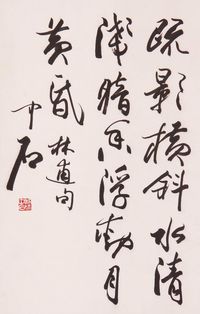 疏影横斜水清
浅暗香浮動月
黄昏 林逋句
中石